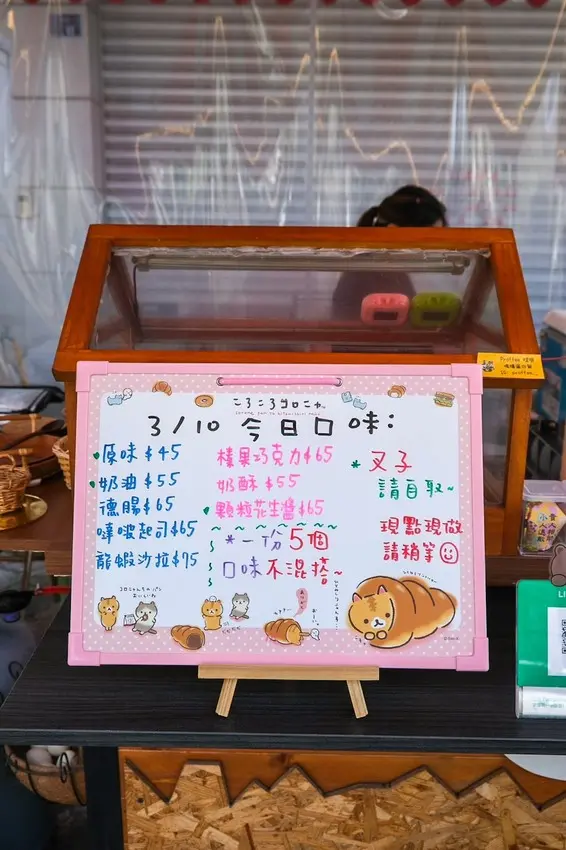 ころころコロニャ
3/10 今日口味:
原味 $45
奶油 $55
德腸 $65
啵啵起司 $65
龍蝦沙拉 $75
榛果巧克力 $65
奶酥 $55
顆粒花生醬 $65
*一份5個
口味不混搭~
* 叉子
請自取~
現點現做
請稍等